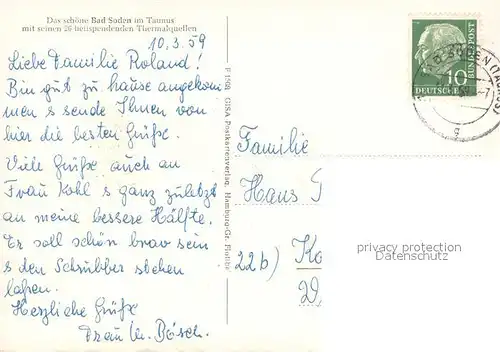 Das schöne Bad Soden im Taunus
mit seinen 26 heilspendenden Thermalquellen
10.3.59
Liebe Familie Roland!
Bin gut zu hause angekom
men s sende Ihnen von
hier die besten Grüße.
Viele Grüße auch an
Frau Kohl s ganz zuletzt
an meine bessere Hälfte.
Er soll schön brav sein
s den Schrubber stehen
laßen.
Herzliche Grüße
Frau M. Bösch.
GISA Postkartenverlag, Hamburg-Gr. Flottbek
DEUTSCHE BUNDESPOST
10
Familie
Hans
22b)
privacy protection
Datenschutz